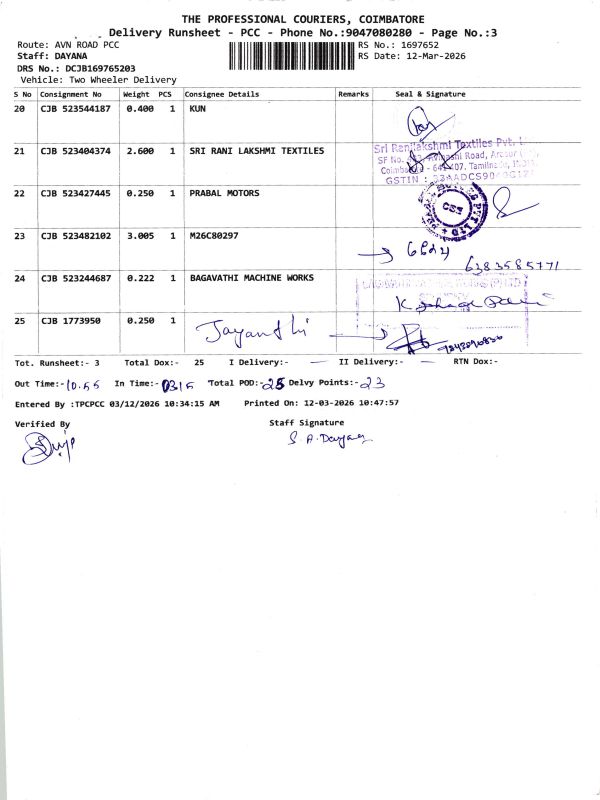 THE PROFESSIONAL COURIERS, COIMBATORE
Delivery Runsheet - PCC - Phone No.:9047080280 - Page No.:3
Route: AVN ROAD PCC
RS No.: 1697652
Staff: DAYANA
RS Date: 12-Mar-2026
DRS No.: DCJB169765203
Vehicle: Two Wheeler Delivery
S No Consignment No Weight PCS Consignee Details Remarks Seal & Signature
20 CJB 523544187 0.400 1 KUN
21 CJB 523404374 2.600 1 SRI RANI LAKSHMI TEXTILES
Sri Ranilakshmi Textiles Pvt.
SF No. Avinashi Road,
Tamilnadu,
GSTIN :
22 CJB 523427445 0.250 1 PRABAL MOTORS
23 CJB 523482102 3.005 1 M26C80297
6383585771
24 CJB 523244687 0.222 1 BAGAVATHI MACHINE WORKS
25 CJB 1773950 0.250 1 Jayanthi
Tot. Runsheet:- 3 Total Dox:- 25 I Delivery:- II Delivery:- RTN Dox:-
Out Time:- 10.55 In Time:- 0315 Total POD:- 25 Delvy Points:- 23
Entered By :TPCPCC 03/12/2026 10:34:15 AM Printed On: 12-03-2026 10:47:57
Verified By Staff Signature
S. A. Dayana